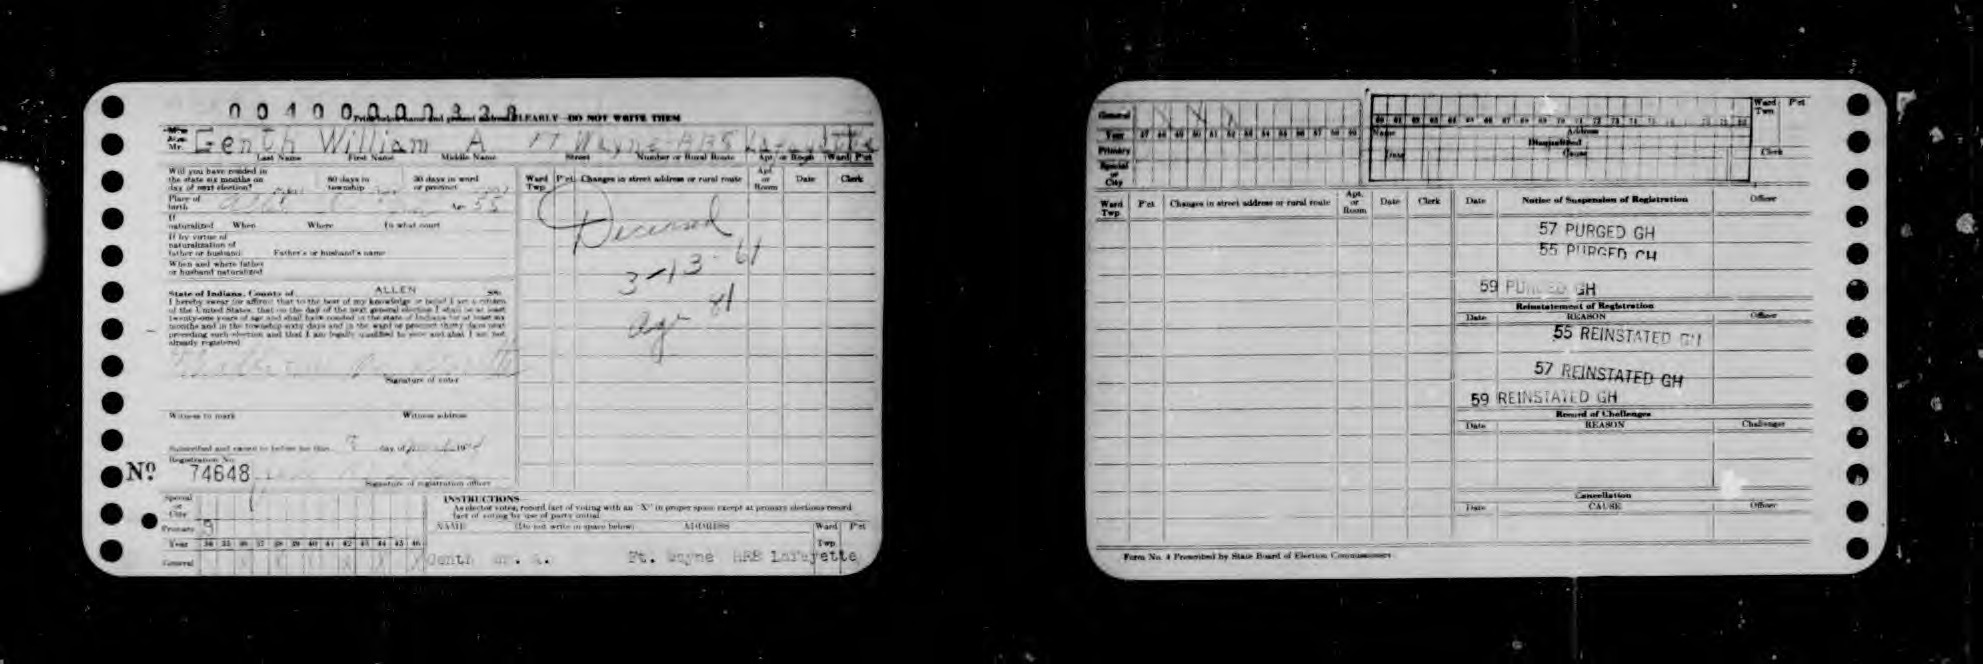 Print below name and present address CLEARLY—DO NOT WRITE THEM
Mr. Genth William A Ft Wayne RR8 Lafayette
Last Name First Name Middle Name Street Number or Rural Route Apt. or Room Ward P'ct
Will you have resided in
the state six months on
day of next election?
60 days in
township
30 days in ward
or precinct
Place of
birth
Age 55
If
naturalized When Where In what court
If by virtue of
naturalization of
father or husband Father's or husband's name
When and where father
or husband naturalized
State of Indiana, County of ALLEN
I hereby swear (or affirm) that to the best of my knowledge or belief I am a citizen
of the United States, that on the day of the next general election I shall be at least
twenty-one years of age and shall have resided in the state of Indiana for at least six
months and in the township sixty days and in the ward or precinct thirty days next
preceding such election and that I am legally qualified to vote and that I am not
already registered
Signature of voter
Witness to mark Witness address
Subscribed and sworn to before me this day of
Registration No.
Nº 74648
Signature of registration officer
Ward Twp. P'ct Changes in street address or rural route Apt. or Room Date Clerk
Deceased
3-13-61
age 81
Special
or
City
Primary
Year 34 35 36 37 38 39 40 41 42 43 44 45 46
General
INSTRUCTIONS
As elector votes, record fact of voting with an "X" in proper space except at primary elections record
fact of voting by use of party initial
NAME (Do not write in space below) ADDRESS Ward Twp. P'ct
Genth Wm. A. Ft. Wayne RR8 Lafayette
General
Year 47 48 49 50 51 52 53 54 55 56 57 58 59
Primary
Special
or
City
Name Address
Disqualified
Date Cause
Ward
Twp
P'ct
Clerk
Ward Twp. P'ct Changes in street address or rural route Apt. or Room Date Clerk
Date Notice of Suspension of Registration Officer
57 PURGED GH
55 PURGED GH
59 PURGED GH
Reinstatement of Registration
Date REASON Officer
55 REINSTATED GH
57 REINSTATED GH
59 REINSTATED GH
Record of Challenges
Date REASON Challenger
Cancellation
Date CAUSE Officer
Form No. 4 Prescribed by State Board of Election Commissioners